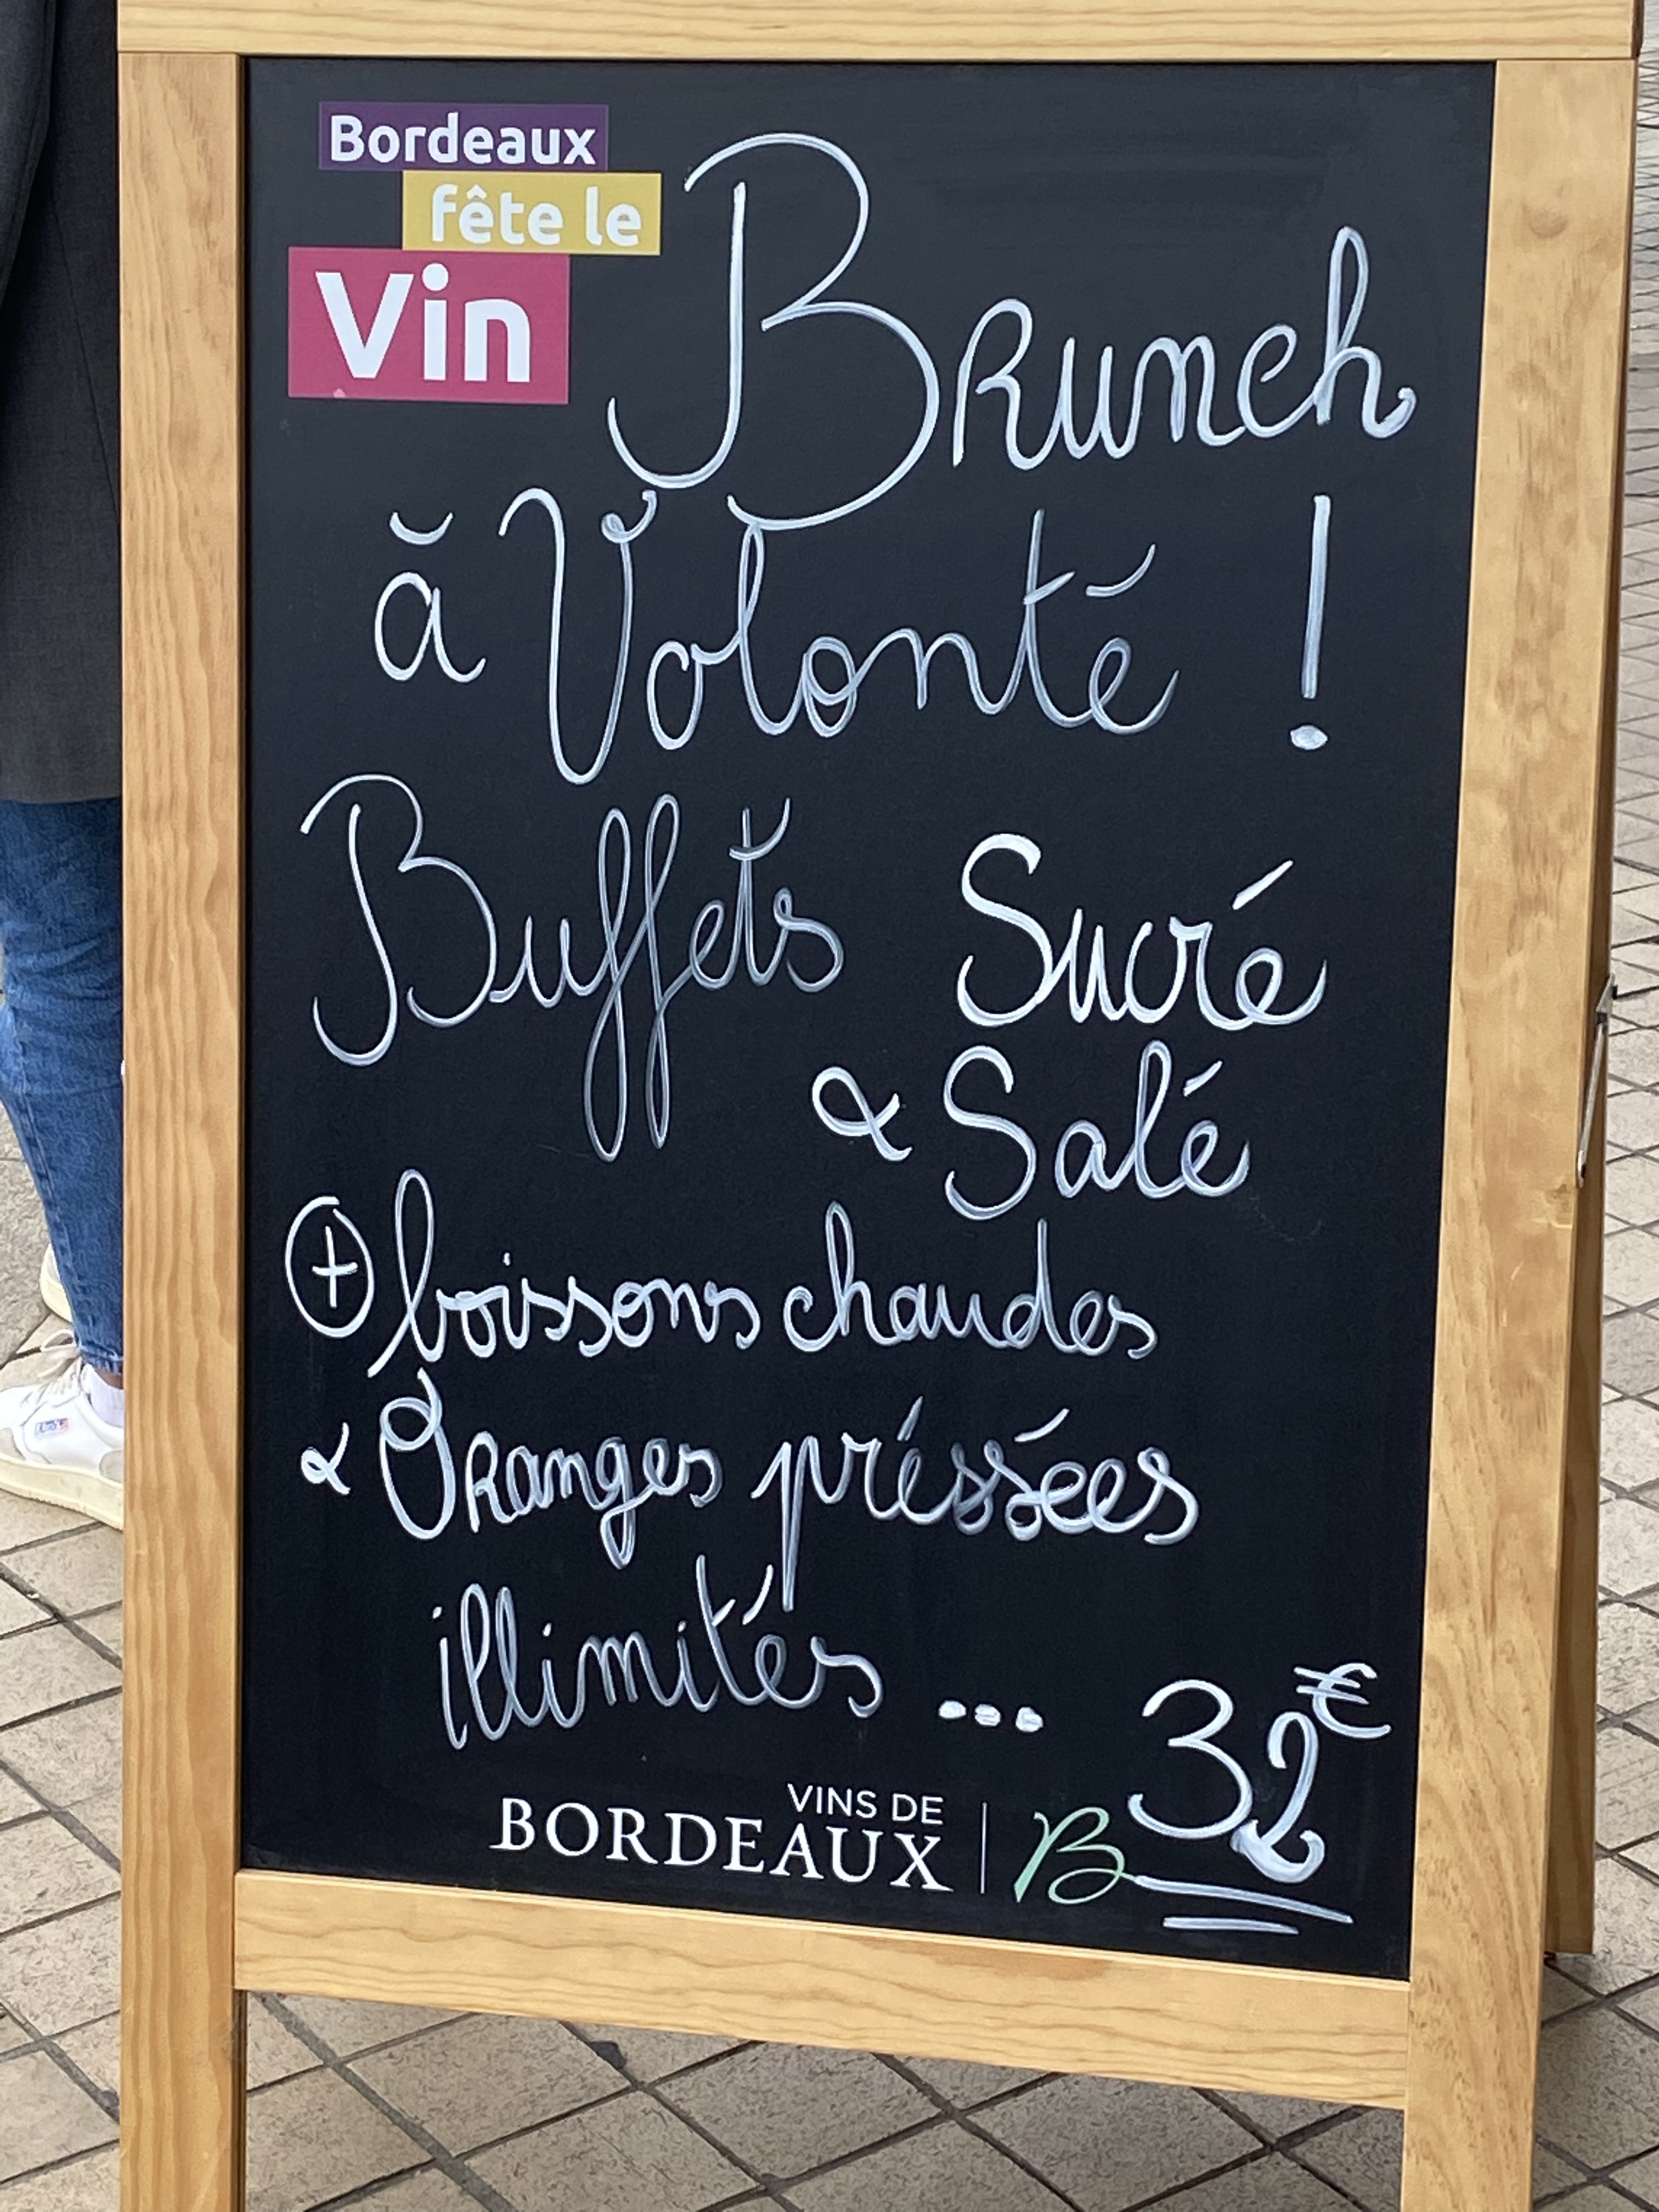 Bordeaux
fête le
Vin
Brunch
à Volonté !
Buffets Sucré
& Salé
+ boissons chaudes
& Oranges préssées
illimités ... 32€
VINS DE
BORDEAUX | B